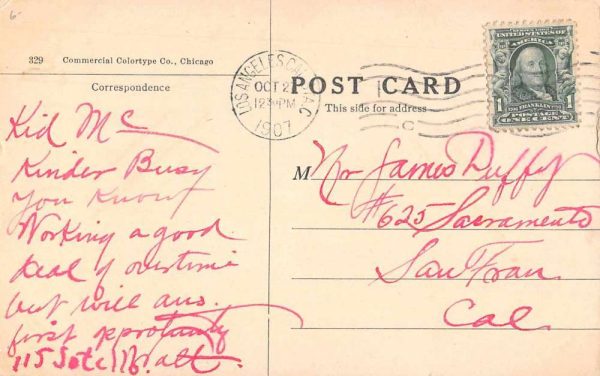 6-
329 Commercial Colortype Co., Chicago
Correspondence
POST CARD
This side for address
LOS ANGELES, CAL.
OCT 2
12 PM
1907
UNITED STATES OF AMERICA
FRANKLIN
1 1
POSTAGE
ONE CENT
Kid Mc
Kinder Busy
You Know
Working a good
deal of overtime
but will ans.
first opprotunity
115
M Mr James Duffy
#625 Sacramento
San Fran.
Cal.